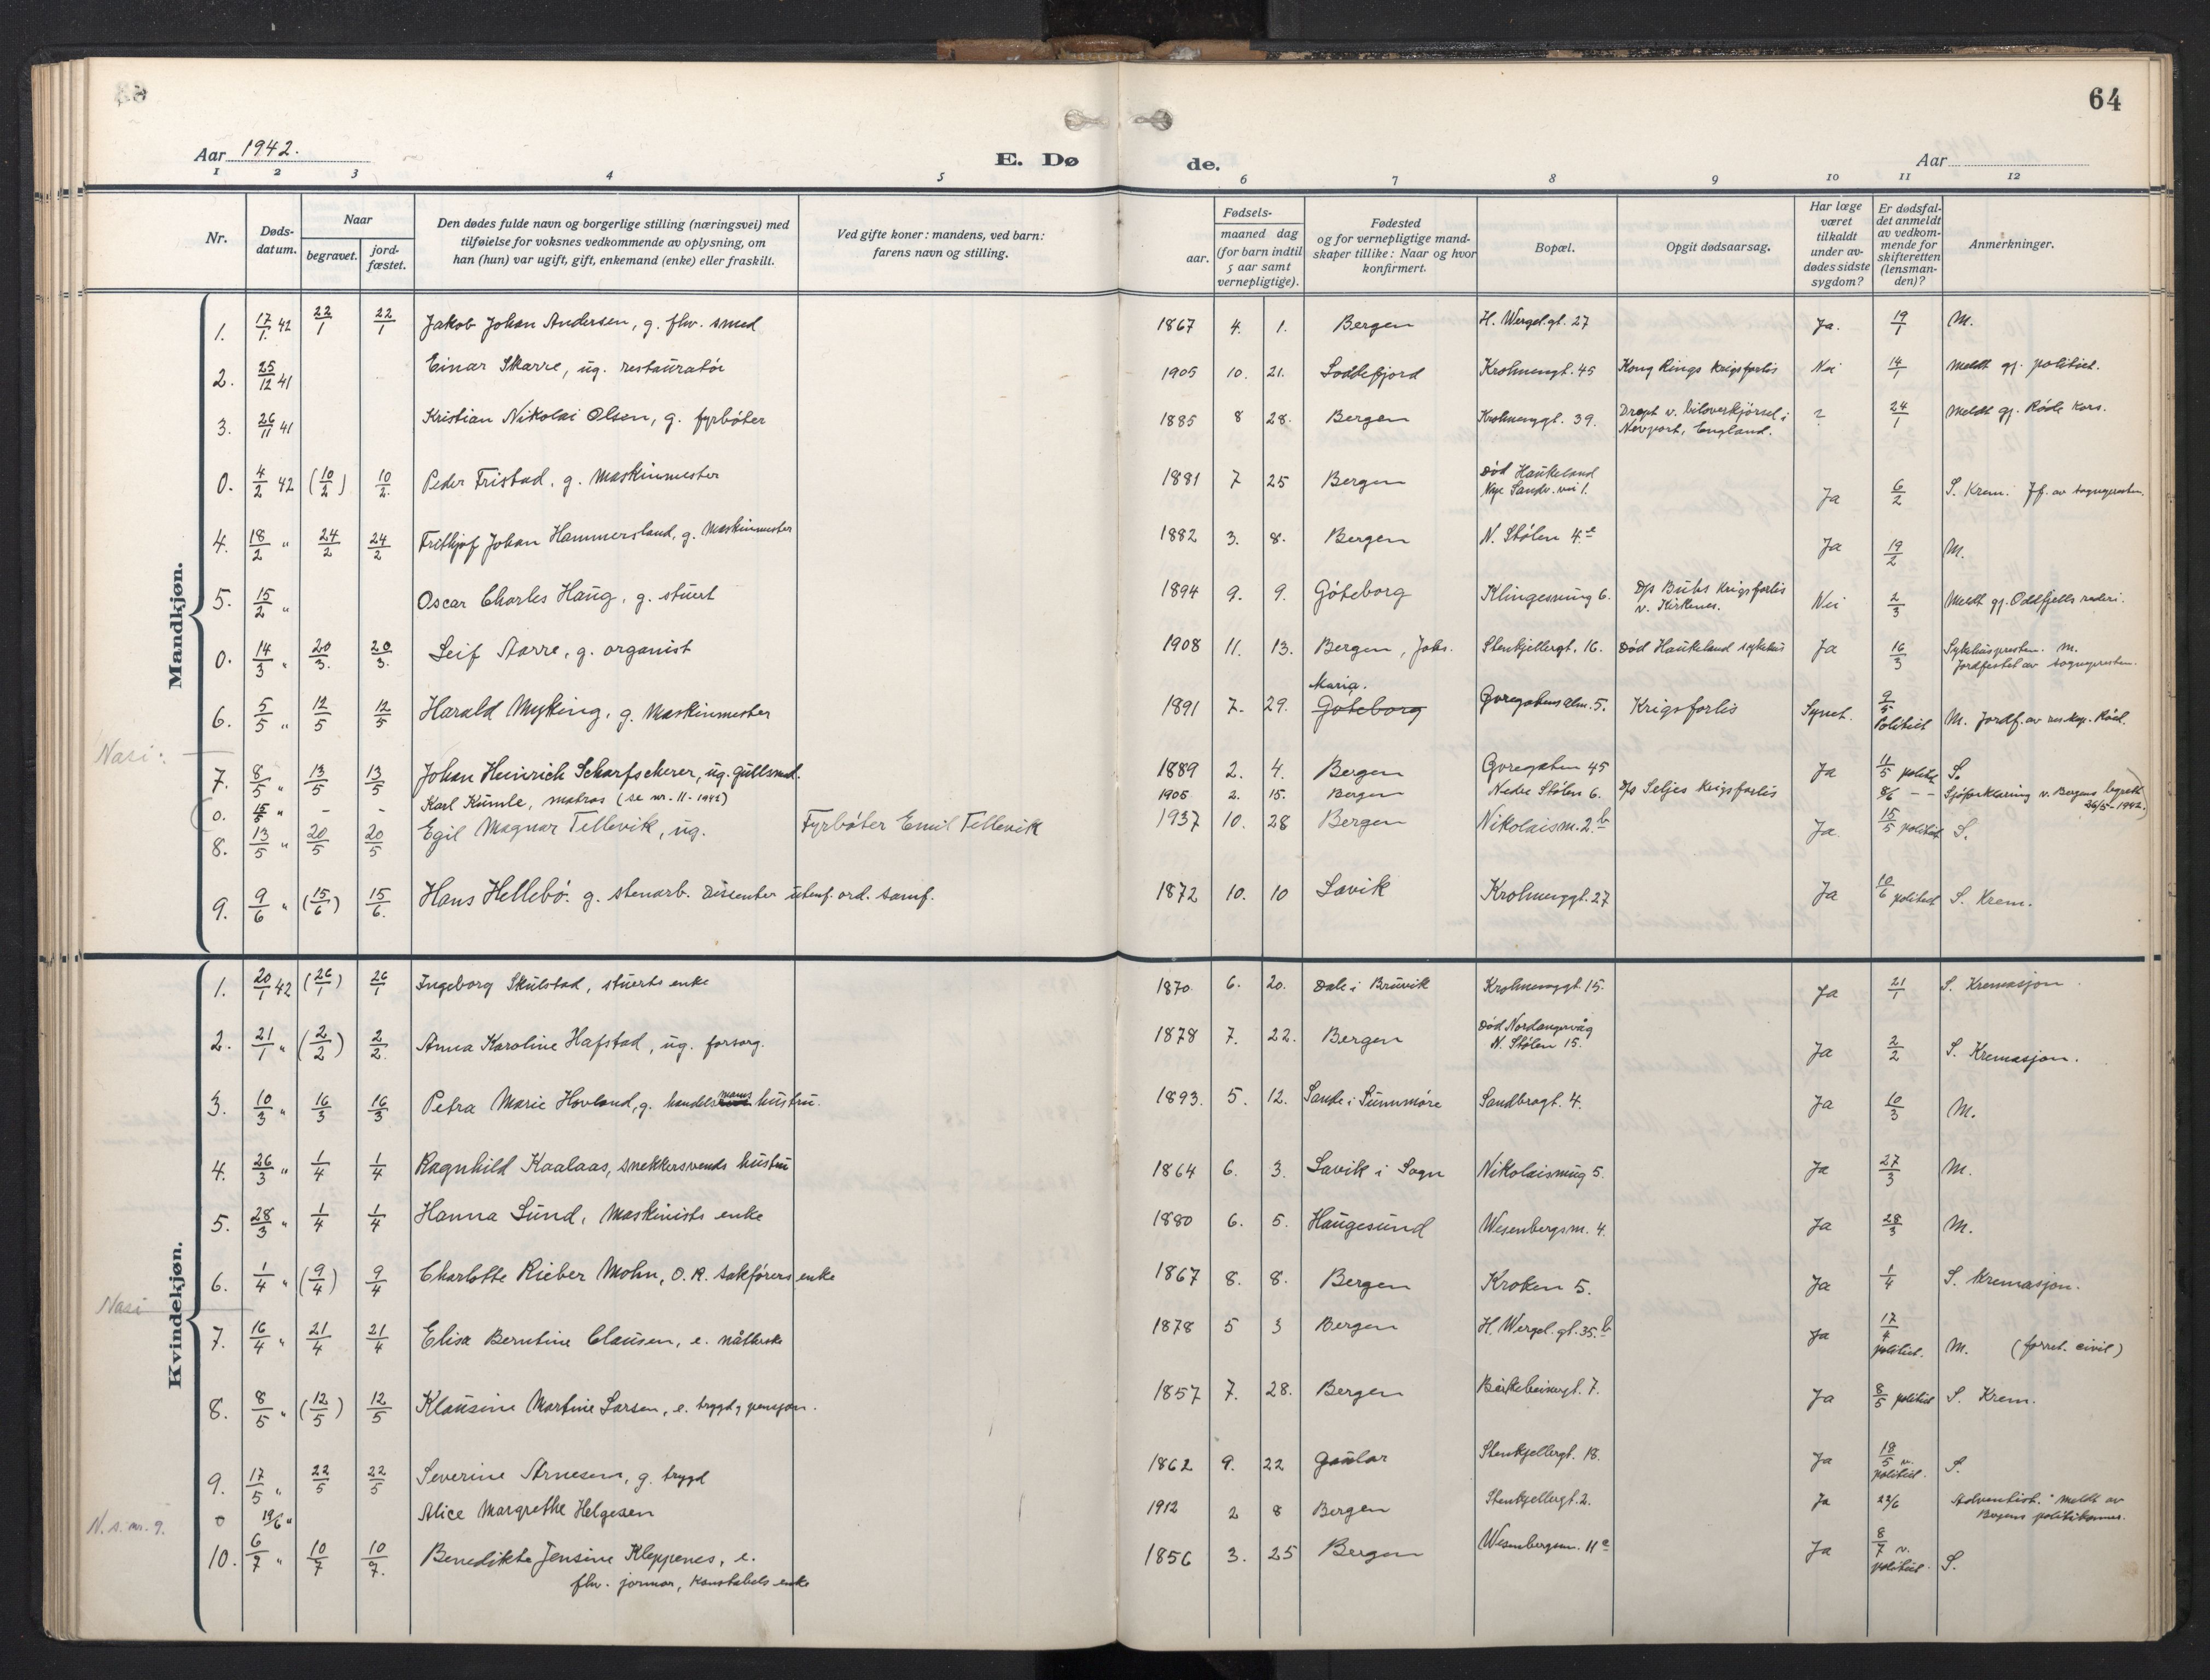 64
Aar 1942.
E. Døde.
Aar
1 2 3 4 5 6 7 8 9 10 11 12
Nr.
Døds-datum.
Naar
begravet.
jord-fæstet.
Den dødes fulde navn og borgerlige stilling (næringsvei) med
tilføielse for voksnes vedkommende av oplysning, om
han (hun) var ugift, gift, enkemand (enke) eller fraskilt.
Ved gifte koner: mandens, ved barn:
farens navn og stilling.
Fødsels-
aar.
maaned dag
(for barn indtil
5 aar samt
vernepligtige).
Fødested
og for vernepligtige mand-
skaper tillike: Naar og hvor
konfirmert.
Bopæl.
Opgit dødsaarsag.
Har læge
været
tilkaldt
under av-
dødes sidste
sygdom?
Er dødsfal-
det anmeldt
av vedkom-
mende for
skifteretten
(lensman-
den)?
Anmerkninger.
Mandkjøn.
1. 17/1 42 22/1 22/1 Jakob Johan Andersen, g. fhv. smed 1867 4. 1. Bergen H. Wergel.gt. 27 Ja. 19/1 M.
2. 25/12 41 Einar Skarre, ug. restauratør 1905 10. 21. Loddefjord Krohnengt. 45 Kong Rings krigsforlis Nei 14/1 Meldt gj. politiet.
3. 26/11 41 Kristian Nikolai Olsen, g. fyrbøter 1885 8 28. Bergen Krohnenggt. 39. Drept v. biloverkjørsel i
Newport, England. ? 24/1 Meldt gj. Røde Kors.
0. 4/2 42 (10/2) 10/2. Peder Fristad, g. Maskinmester 1881 7 25 Bergen Død Haukeland
Nye Sandv. vei 1. Ja 6/2 S. Krem. Jf. av sognepresten.
4. 18/2 " 24/2 24/2 Frithjof Johan Hammersland, g. Maskinmester 1882 3. 8. Bergen N. Stølen 4.e Ja 19/2 M.
5. 15/2 " Oscar Charles Haug, g. stuert 1894 9. 9. Göteborg Klingesmug 6. D/s Bubs krigsforlis
v. Kirkenes. Nei 2/3 Meldt gj. Odfjells rederi.
0. 14/3 " 20/3. 20/3. Leif Aarre, g. organist 1908 11. 13. Bergen, Johs. Stenkjellergt. 16. Død Haukeland sykehus Ja 16/3 Sykehuspresten. M.
Jordfestet av sognepresten.
6. 5/5 " 12/5 12/5 Harald Myking, g. Maskinmester 1891 7. 29. Maria.
Göteborg Øvregatens alm. 5. Krigsforlis Synet. 9/5
Politiet M. Jordf. av res.kap. Røed.
Nasi:
7. 8/5 " 13/5 13/5 Johan Heinrich Scharfscherer, ug. gullsmed. 1889 2. 4. Bergen Øvregaten 45 Ja 11/5 politiet S.
0. 15/5 " - - Karl Kumle, matros (se nr. 11 - 1942) 1905 2. 15. Bergen Nedre Stølen 6. D/s Seljes krigsforlis 8/6 - - Sjøforklaring v. Bergens byrett
26/5-1942.
8. 13/5 " 20/5 20/5 Egil Magnar Tellevik, ug. Fyrbøter Emil Tellevik 1937 10. 28 Bergen Nikolaism. 2.b Ja. 15/5 politiet S.
9. 9/6 " (15/6) 15/6. Hans Hellebø. g. stenarb. Dissenter utenf. ord. samf. 1872 10. 10 Lavik Krohnenggt. 27 Ja 10/6 politiet S. Krem.
Kvindekjøn.
1. 20/1 42 (26/1) 26/1 Ingeborg Skulstad, stuerts enke 1870. 6. 20. Dale i Bruvik Krohnenggt. 15. Ja 21/1 S. Kremasjon.
2. 21/1 " (2/2) 2/2. Anna Karoline Hafstad, ug. forsorg. 1878 7. 22. Bergen Død Nordangervåg
N. Stølen 15. Ja 2/2 S. Kremasjon.
3. 10/3 " 16/3 16/3 Petra Marie Hovland, g. handelsmanns hustru. 1893. 5. 12. Sande i Sunnmøre Sandbrogt. 4. Ja 10/3 M.
4. 26/3 " 1/4 1/4 Ragnhild Kaalaas, snekkersvends hustru 1864 6. 3. Lavik i Sogn Nikolaismug 5. Ja 27/3 M.
5. 28/3 " 1/4 1/4 Hanna Sund, Maskinists enke 1880 6. 5. Haugesund Wesenbergsm. 4. Ja 28/3 M.
6. 1/4 " (9/4) 9/4 Charlotte Rieber Mohn, O.R. sakførers enke 1867 8. 8. Bergen Kroken 5. Ja 1/4 S. Kremasjon.
Nasi
7. 16/4 " 21/4 21/4 Elisa Berntine Clausen, e. nåtlerske 1878 5 3 Bergen H. Wergel.gt. 35.b Ja 17/4
politiet. M. (forret. civil)
8. 8/5 " (12/5) 12/5 Klausine Martine Larsen, e. trygd, pensjon. 1857 7. 28. Bergen Birkebeinergt. 7. Ja 8/5 politiet S. Krem.
9. 17/5 " 22/5 22/5 Severine Arnesen, g. trygd 1862 9. 22 Gaular Stenkjellergt. 18. Ja 18/5 v.
politiet. S.
0 19/6 " Alice Margrethe Helgesen 1912 2 8 Bergen Stenkjellergt. 2. Ja 22/6 Adventist. Meldt av
Bergens politikammer.
N.s. nr. 9.
10. 6/7 " 10/7 10/7. Benedikte Jensine Kleppenes, e.
fhv. jormor, Konstabels enke 1856 3. 25 Bergen Wesenbergsm. 11e Ja 8/7 v.
politiet. S.